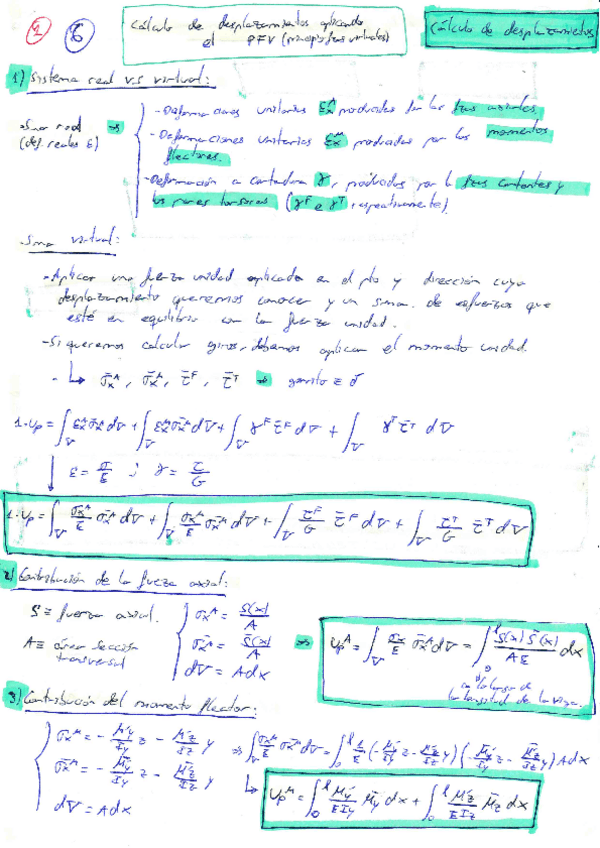 2 6
Cálculo de desplazamientos aplicando
el PFV (principio fzas virtuales)
Cálculo de desplazamientos
1) Sistema real v.s virtual:
Sma real
(def. reales ε)
⇒
- Deformaciones unitarias εxᴬ producidas por las fzas axiales.
- Deformaciones unitarias εxᴹ producidas por los momentos
flectores.
- Deformación a cortadura γ, producidas por l fzas cortantes y
los pares torsores (γᶠ e γᵀ, respectivamente).
. Sma virtual:
- Aplicar una fuerza unidad aplicada en el pto y dirección cuyo
desplazamiento queremos conocer y un sma. de esfuerzos que
esté en equilibrio con la fuerza unidad.
- Si queremos calcular giros, debemos aplicar el momento unidad.
- ↳ σ̄xᴬ, σ̄xᴹ, τ̄ᶠ, τ̄ᵀ ⇒
1·Up = ∫ᵥ εxᴬ σ̄xᴬ dV + ∫ᵥ εxᴹ σ̄xᴹ dV + ∫ᵥ γᶠ τ̄ᶠ dV + ∫ᵥ γᵀ τ̄ᵀ dV
↓ ε = σ/E ; γ = τ/G
1·Up = ∫ᵥ σxᴬ/E σ̄xᴬ dV + ∫ᵥ σxᴹ/E σ̄xᴹ dV + ∫ᵥ τᶠ/G τ̄ᶠ dV + ∫ᵥ τᵀ/G τ̄ᵀ dV
2) Contribución de la fuerza axial:
S ≡ fuerza axial.
A ≡ área sección
transversal
σxᴬ = S(x)/A
σ̄xᴬ = S̄(x)/A
dV = A dx
⇒ Upᴬ = ∫ᵥ σx/E σ̄xᴬ dV = ∫₀ˡ S(x) S̄(x)/AE dx
a lo largo de
la longitud de la viga.
3) Contribución del momento flector:
σxᴹ = - My/Iy z - Mz/Iz y
σ̄xᴹ = - M̄y/Iy z - M̄z/Iz y
dV = A dx
⇒ ∫ᵥ σxᴹ/E σ̄xᴹ dV = ∫₀ˡ 1/E (-My/Iy z - Mz/Iz y)(-M̄y/Iy z - M̄z/Iz y) A dx
↳ Upᴹ = ∫₀ˡ My/EIy M̄y dx + ∫₀ˡ Mz/EIz M̄z dx